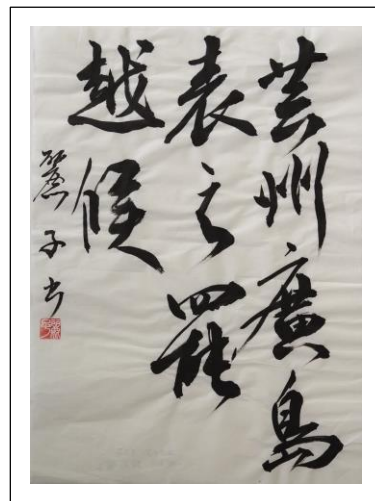 芸州廣島
表之罷
越候
子书